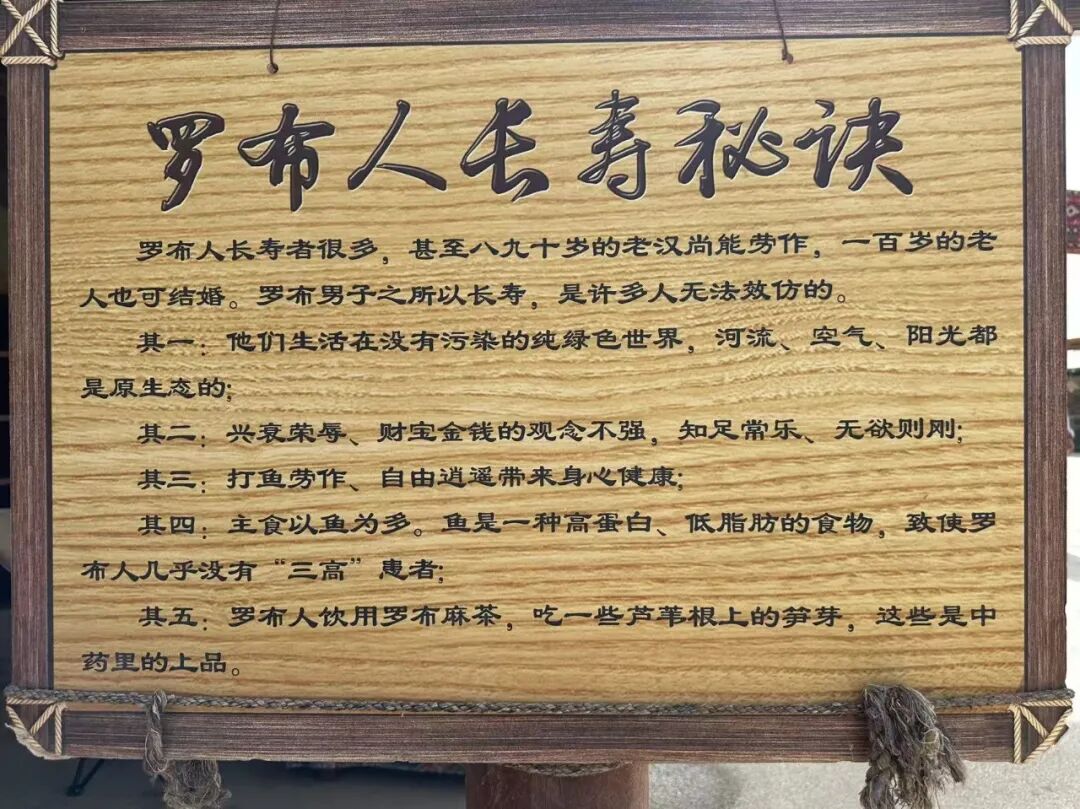 罗布人长寿秘诀
罗布人长寿者很多，甚至八九十岁的老汉尚能劳作，一百岁的老
人也可结婚。罗布男子之所以长寿，是许多人无法效仿的。
其一：他们生活在没有污染的纯绿色世界，河流、空气、阳光都
是原生态的；
其二：兴衰荣辱、财宝金钱的观念不强，知足常乐、无欲则刚；
其三：打鱼劳作、自由逍遥带来身心健康；
其四：主食以鱼为多。鱼是一种高蛋白、低脂肪的食物，致使罗
布人几乎没有“三高”患者；
其五：罗布人饮用罗布麻茶，吃一些芦苇根上的笋芽，这些是中
药里的上品。